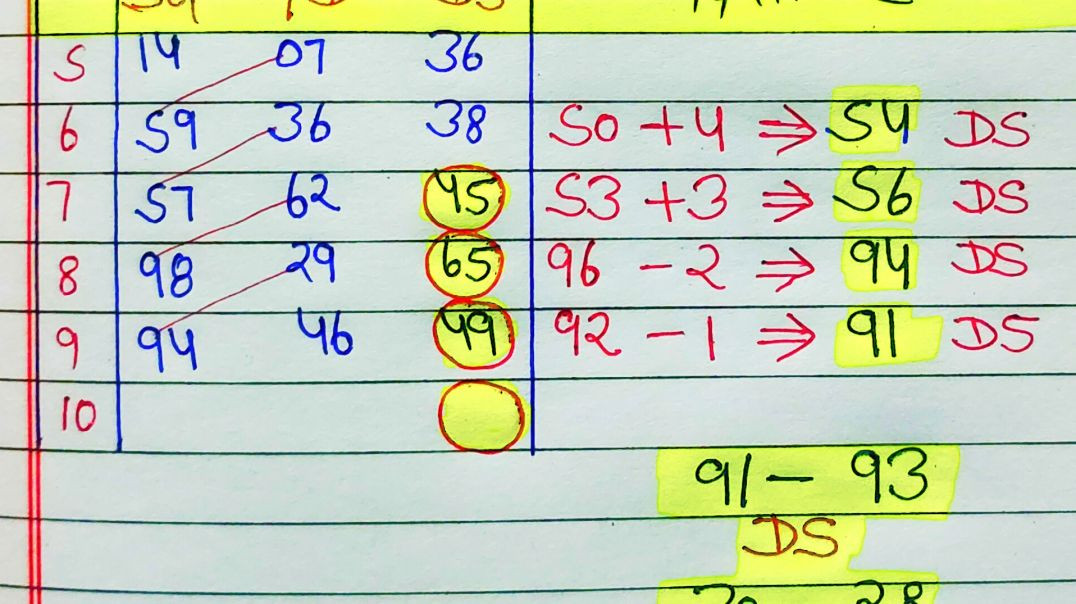 5 14 07 36
6 59 36 38 50 + 4 ⇒ 54 DS
7 57 62 45 53 + 3 ⇒ 56 DS
8 98 29 65 96 - 2 ⇒ 94 DS
9 94 46 49 92 - 1 ⇒ 91 DS
10
91 - 93
DS